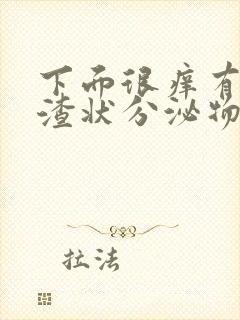 下而很痒有
渣状分泌物
拉法